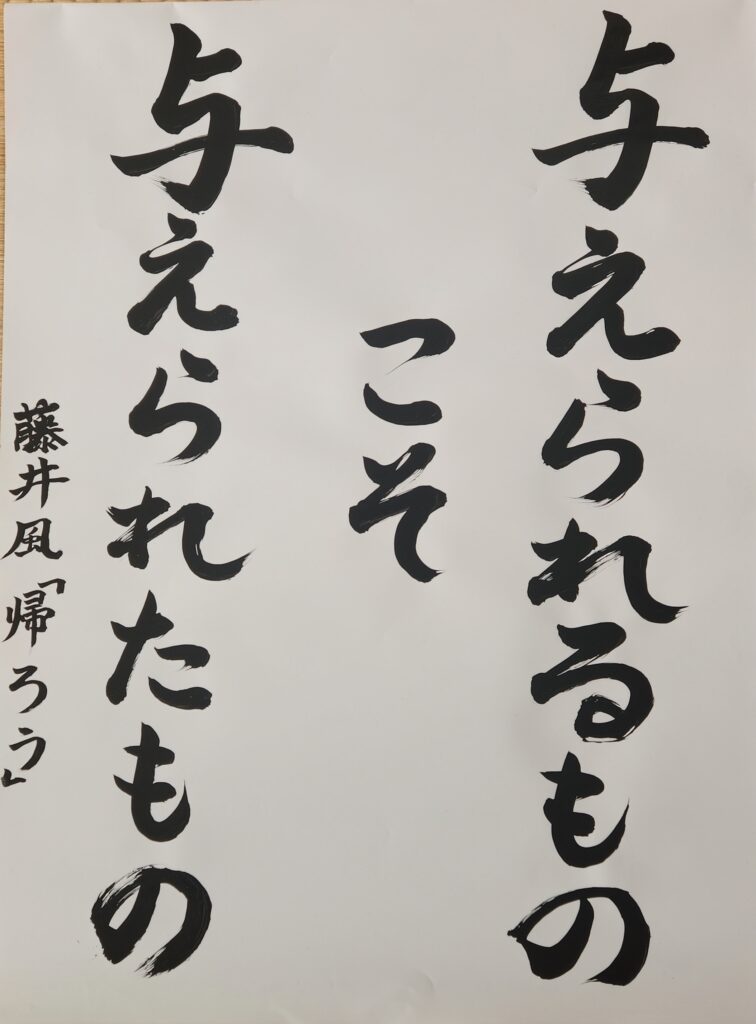 与えられるもの
こそ
与えられたもの
藤井風「帰ろう」